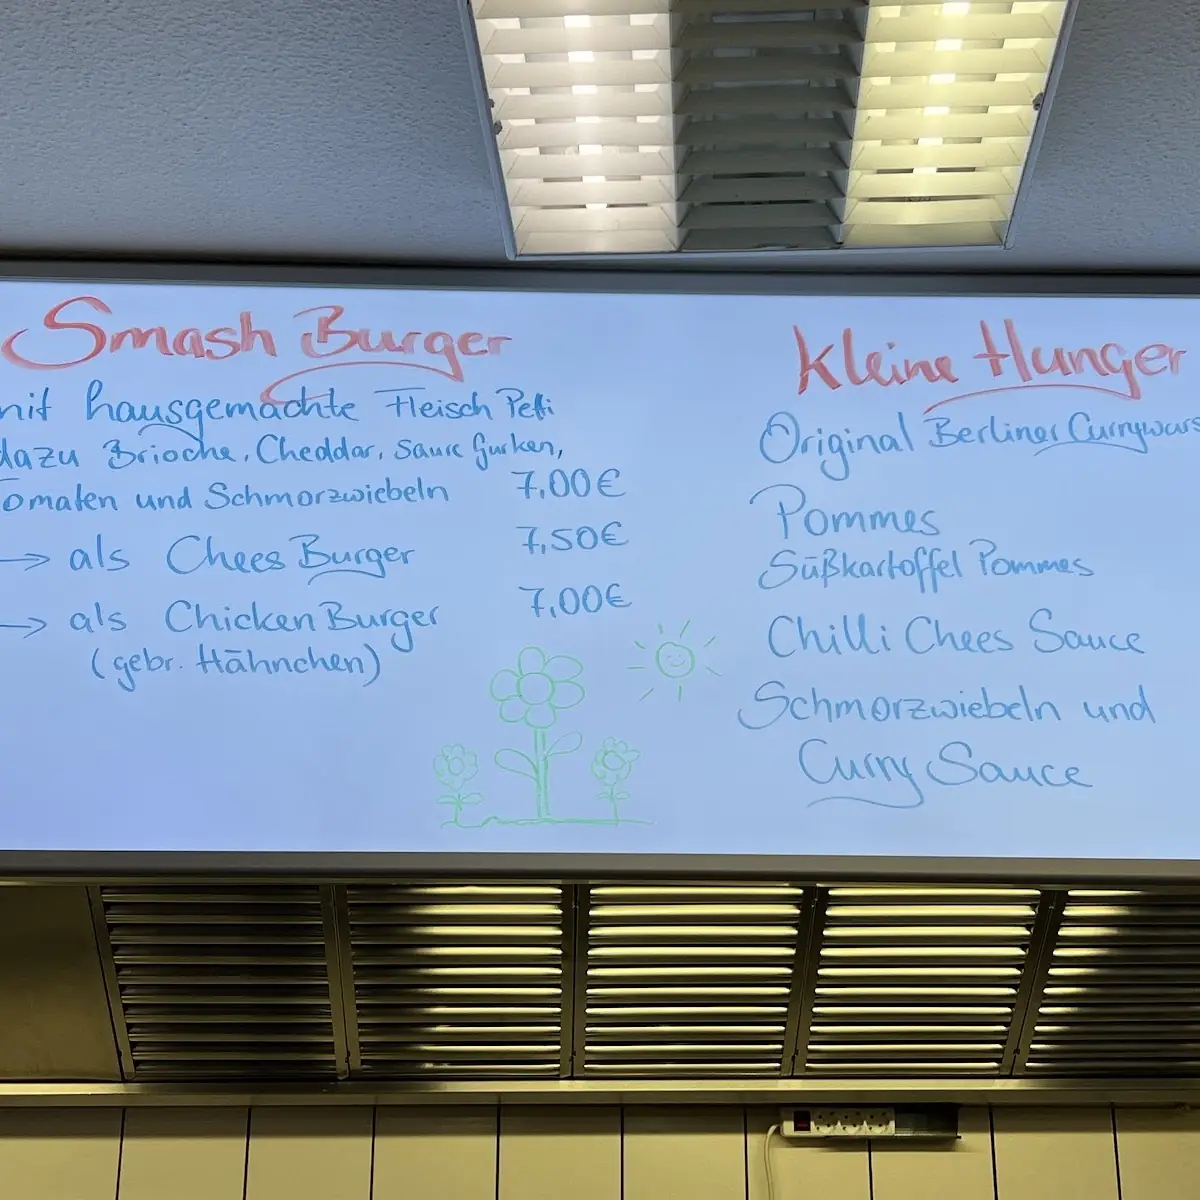 Smash Burger
mit hausgemachte Fleisch Peti
dazu Brioche, Cheddar, Saure Gurken,
Tomaten und Schmorzwiebeln 7,00€
→ als Chees Burger 7,50€
→ als Chicken Burger 7,00€
(gebr. Hähnchen)
Kleine Hunger
Original Berliner Currywurs
Pommes
Süßkartoffel Pommes
Chilli Chees Sauce
Schmorzwiebeln und
Curry Sauce